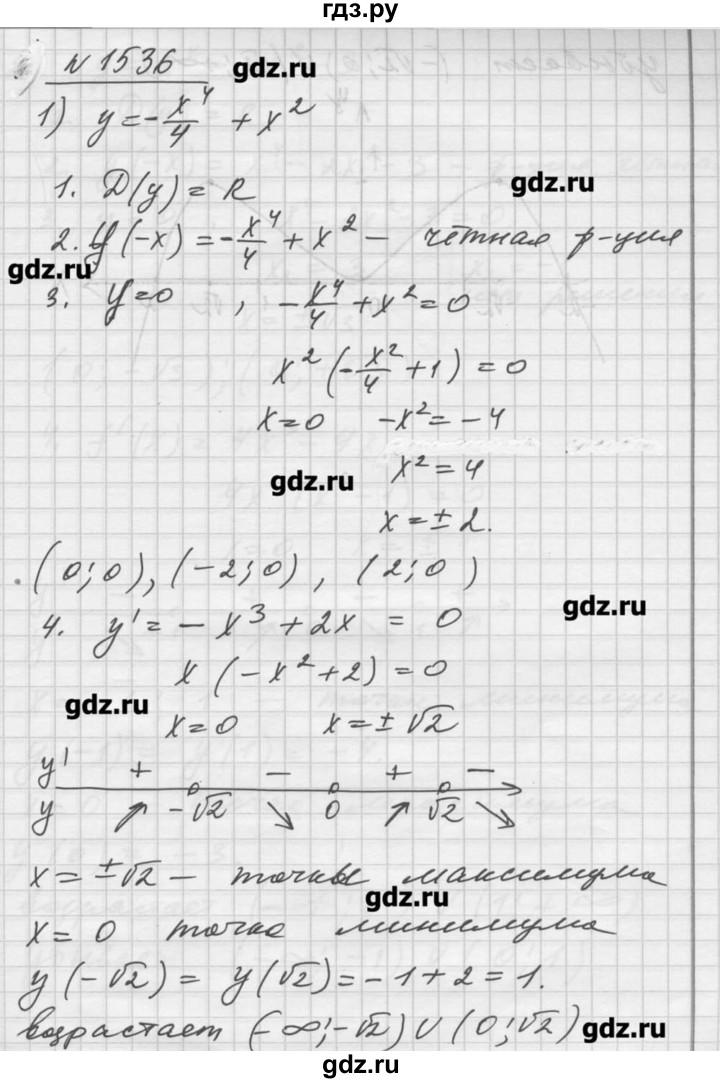 гдз.ру
№ 1536 gdz.ru
1) y = -x⁴/4 + x²
1. D(y) = R gdz.ru
2. y(-x) = -x⁴/4 + x² — чётная р-ция
gdz.ru
3. y=0, -x⁴/4 + x² = 0
x²(-x²/4 + 1) = 0
x=0 -x² = -4
gdz.ru x² = 4
x = ± 2.
(0;0), (-2;0), (2;0)
gdz.ru
4. y' = -x³ + 2x = 0
x(-x² + 2) = 0
gdz.ru
x=0 x=±√2
y' + - + -
y ↗ -√2 ↘ 0 ↗ √2 ↘
x = ±√2 — точки максимума
gdz.ru
x = 0 точка минимума
y(-√2) = y(√2) = -1+2 = 1.
возрастает (-∞;-√2) ∪ (0;√2) gdz.ru
gdz.ru